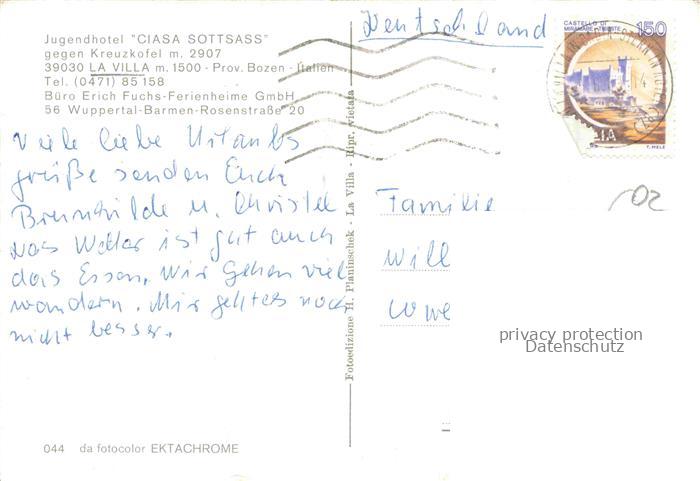 Jugendhotel "CIASA SOTTSASS"
gegen Kreuzkofel m. 2907
39030 LA VILLA m. 1500 - Prov. Bozen - Italien
Tel. (0471) 85 158
Büro Erich Fuchs-Ferienheime GmbH
56 Wuppertal-Barmen-Rosenstraße 20
Viele liebe Urlaubs
grüße senden Euch
Brunhilde u. Christel
Das Wetter ist gut auch
das Essen, wir gehen viel
wandern. Mir geht es noch
nicht besser.
044 da fotocolor EKTACHROME
Fotoedizione H. Planinschek - La Villa - Ripr. vietata
Deutschland
CASTELLO DI
MIRAMARE-TRIESTE
150
T. MELE
102
Familie
Will
Uwe
privacy protection
Datenschutz